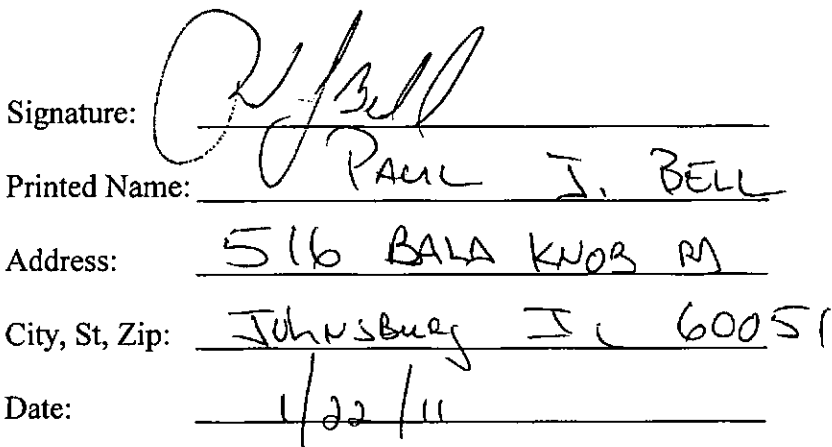 Signature: J Bell
Printed Name: PAUL J. BELL
Address: 516 BALD KNOB Rd
City, St, Zip: JOHNSBURG IL 60051
Date: 1/22/11